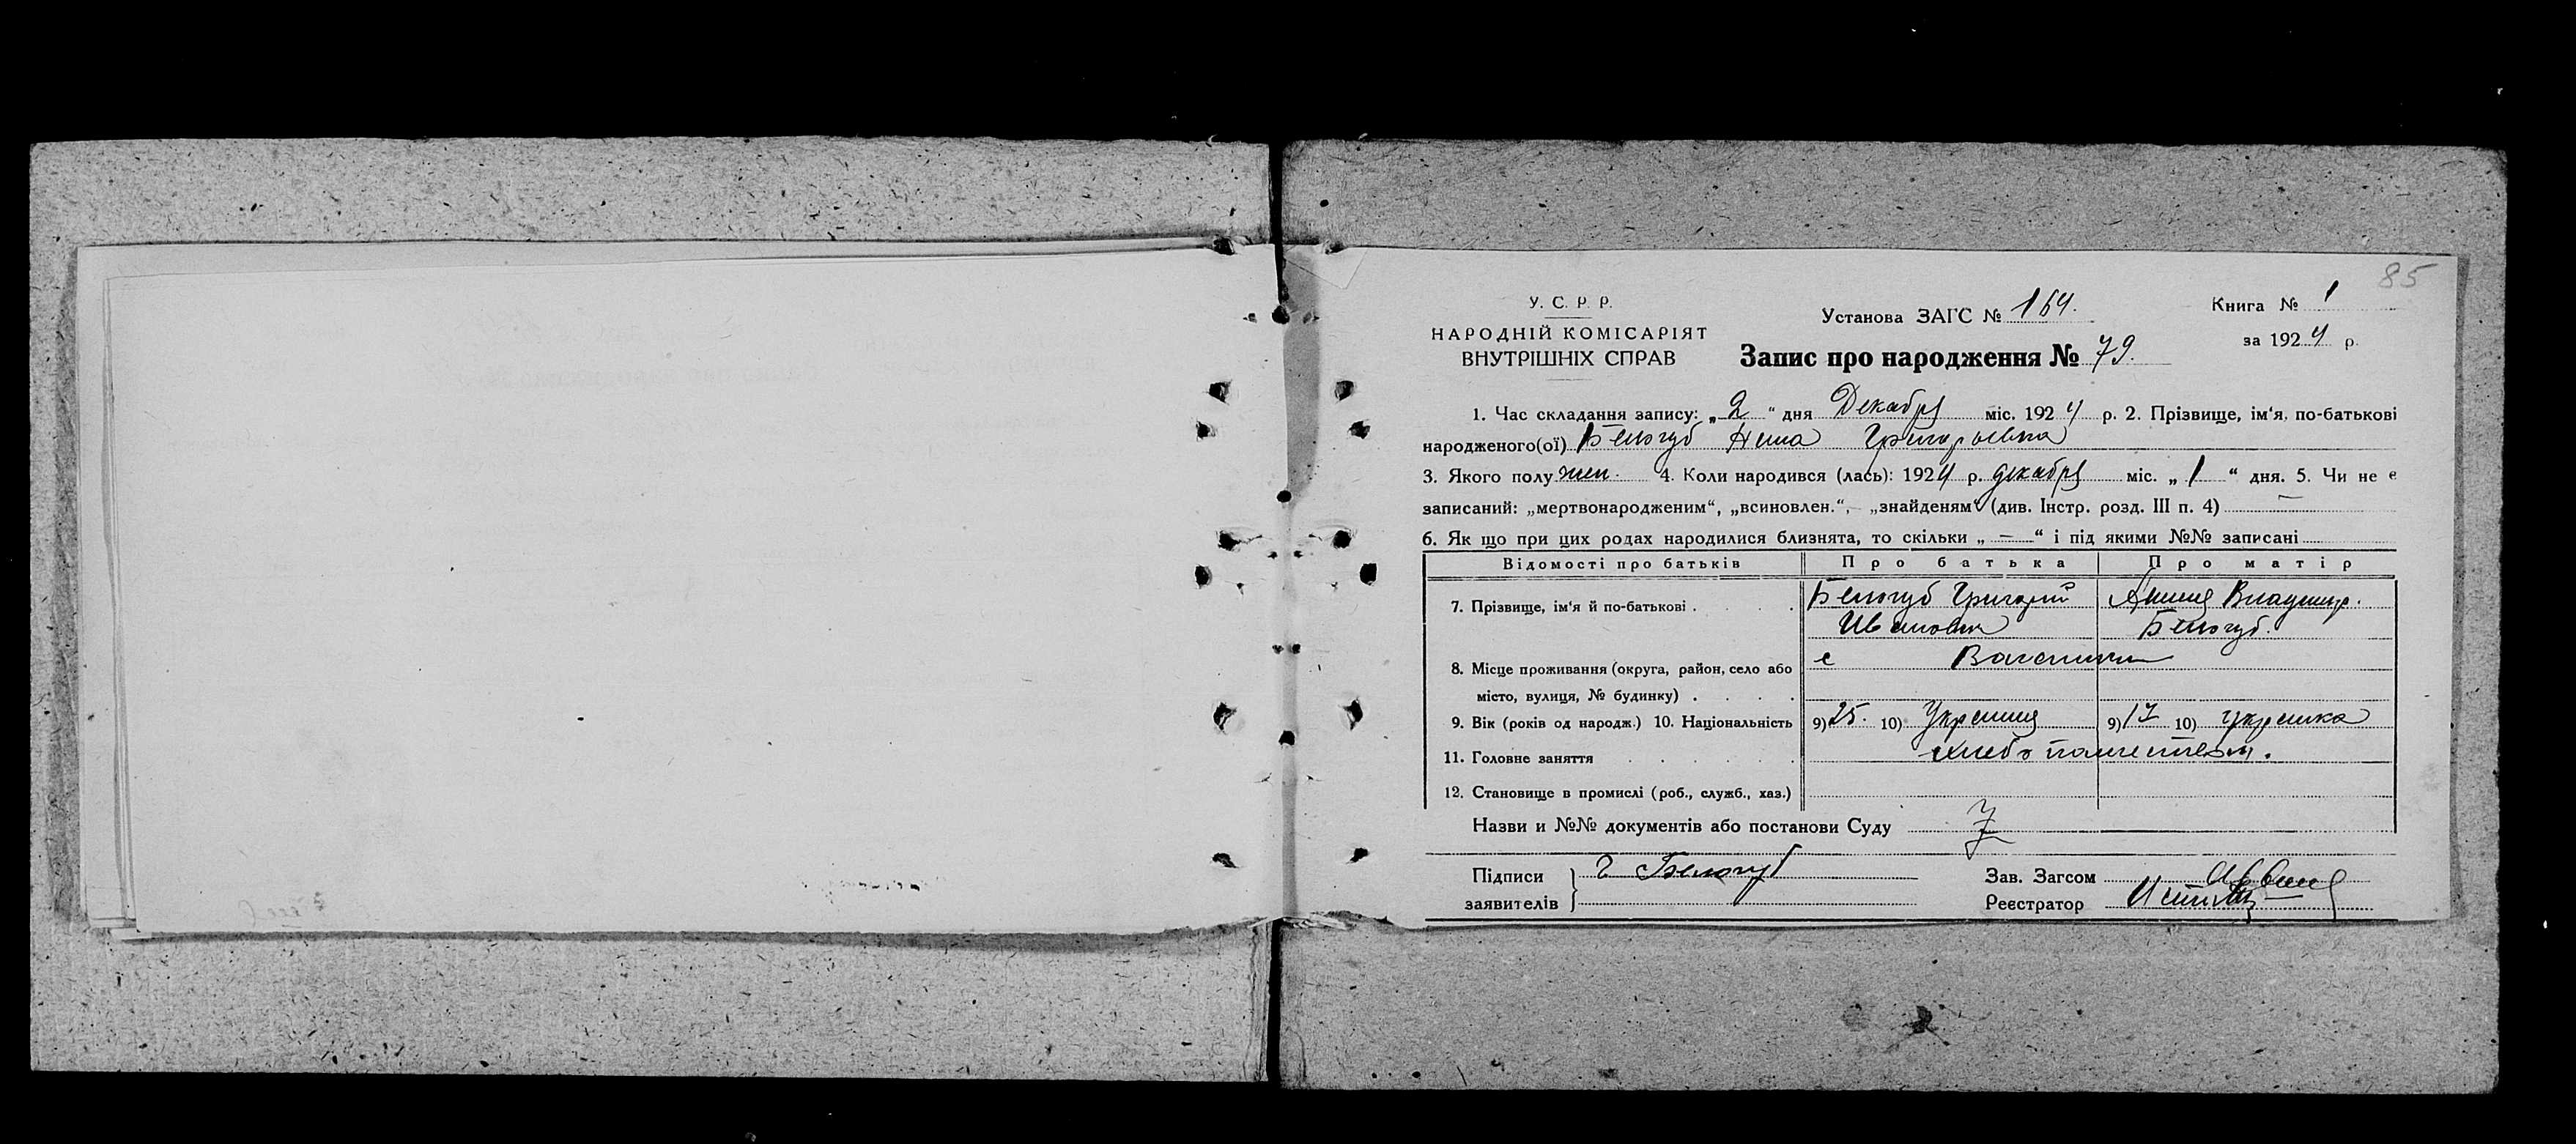 85
У. С. Р. Р.
НАРОДНІЙ КОМІСАРІЯТ
ВНУТРІШНІХ СПРАВ
Установа ЗАГС № 164.
Книга № 1
за 1924 р.
Запис про народження № 79.
1. Час складання запису: „ 2 " дня Декабря міс. 1924 р. 2. Прізвище, ім'я, по-батькові
народженого(ої) Белогуб Нина Григорьевна
3. Якого полу жен. 4. Коли народився (лась): 1924 р. декабря міс. „ 1 " дня. 5. Чи не є
записаний: „мертвонародженим", „всиновлен.", „знайденям" (див. Інстр. розд. III п. 4) —
6. Як що при цих родах народилися близнята, то скільки „ — " і під якими №№ записані
Відомості про батьків Про батька Про матір
7. Прізвище, ім'я й по-батькові . . . . Белогуб Григорий Владимир.
Иванович Белогуб.
8. Місце проживання (округа, район, село або с
місто, вулиця, № будинку) . . . .
9. Вік (років од народж.) 10. Національність 9) 25. 10) 9) 17 10)
11. Головне заняття . . . . . . хлебопашеством.
12. Становище в промислі (роб., служб., хаз.)
Назви и №№ документів або постанови Суду
Підписи Г Белогуб Зав. Загсом
заявителів Реєстратор